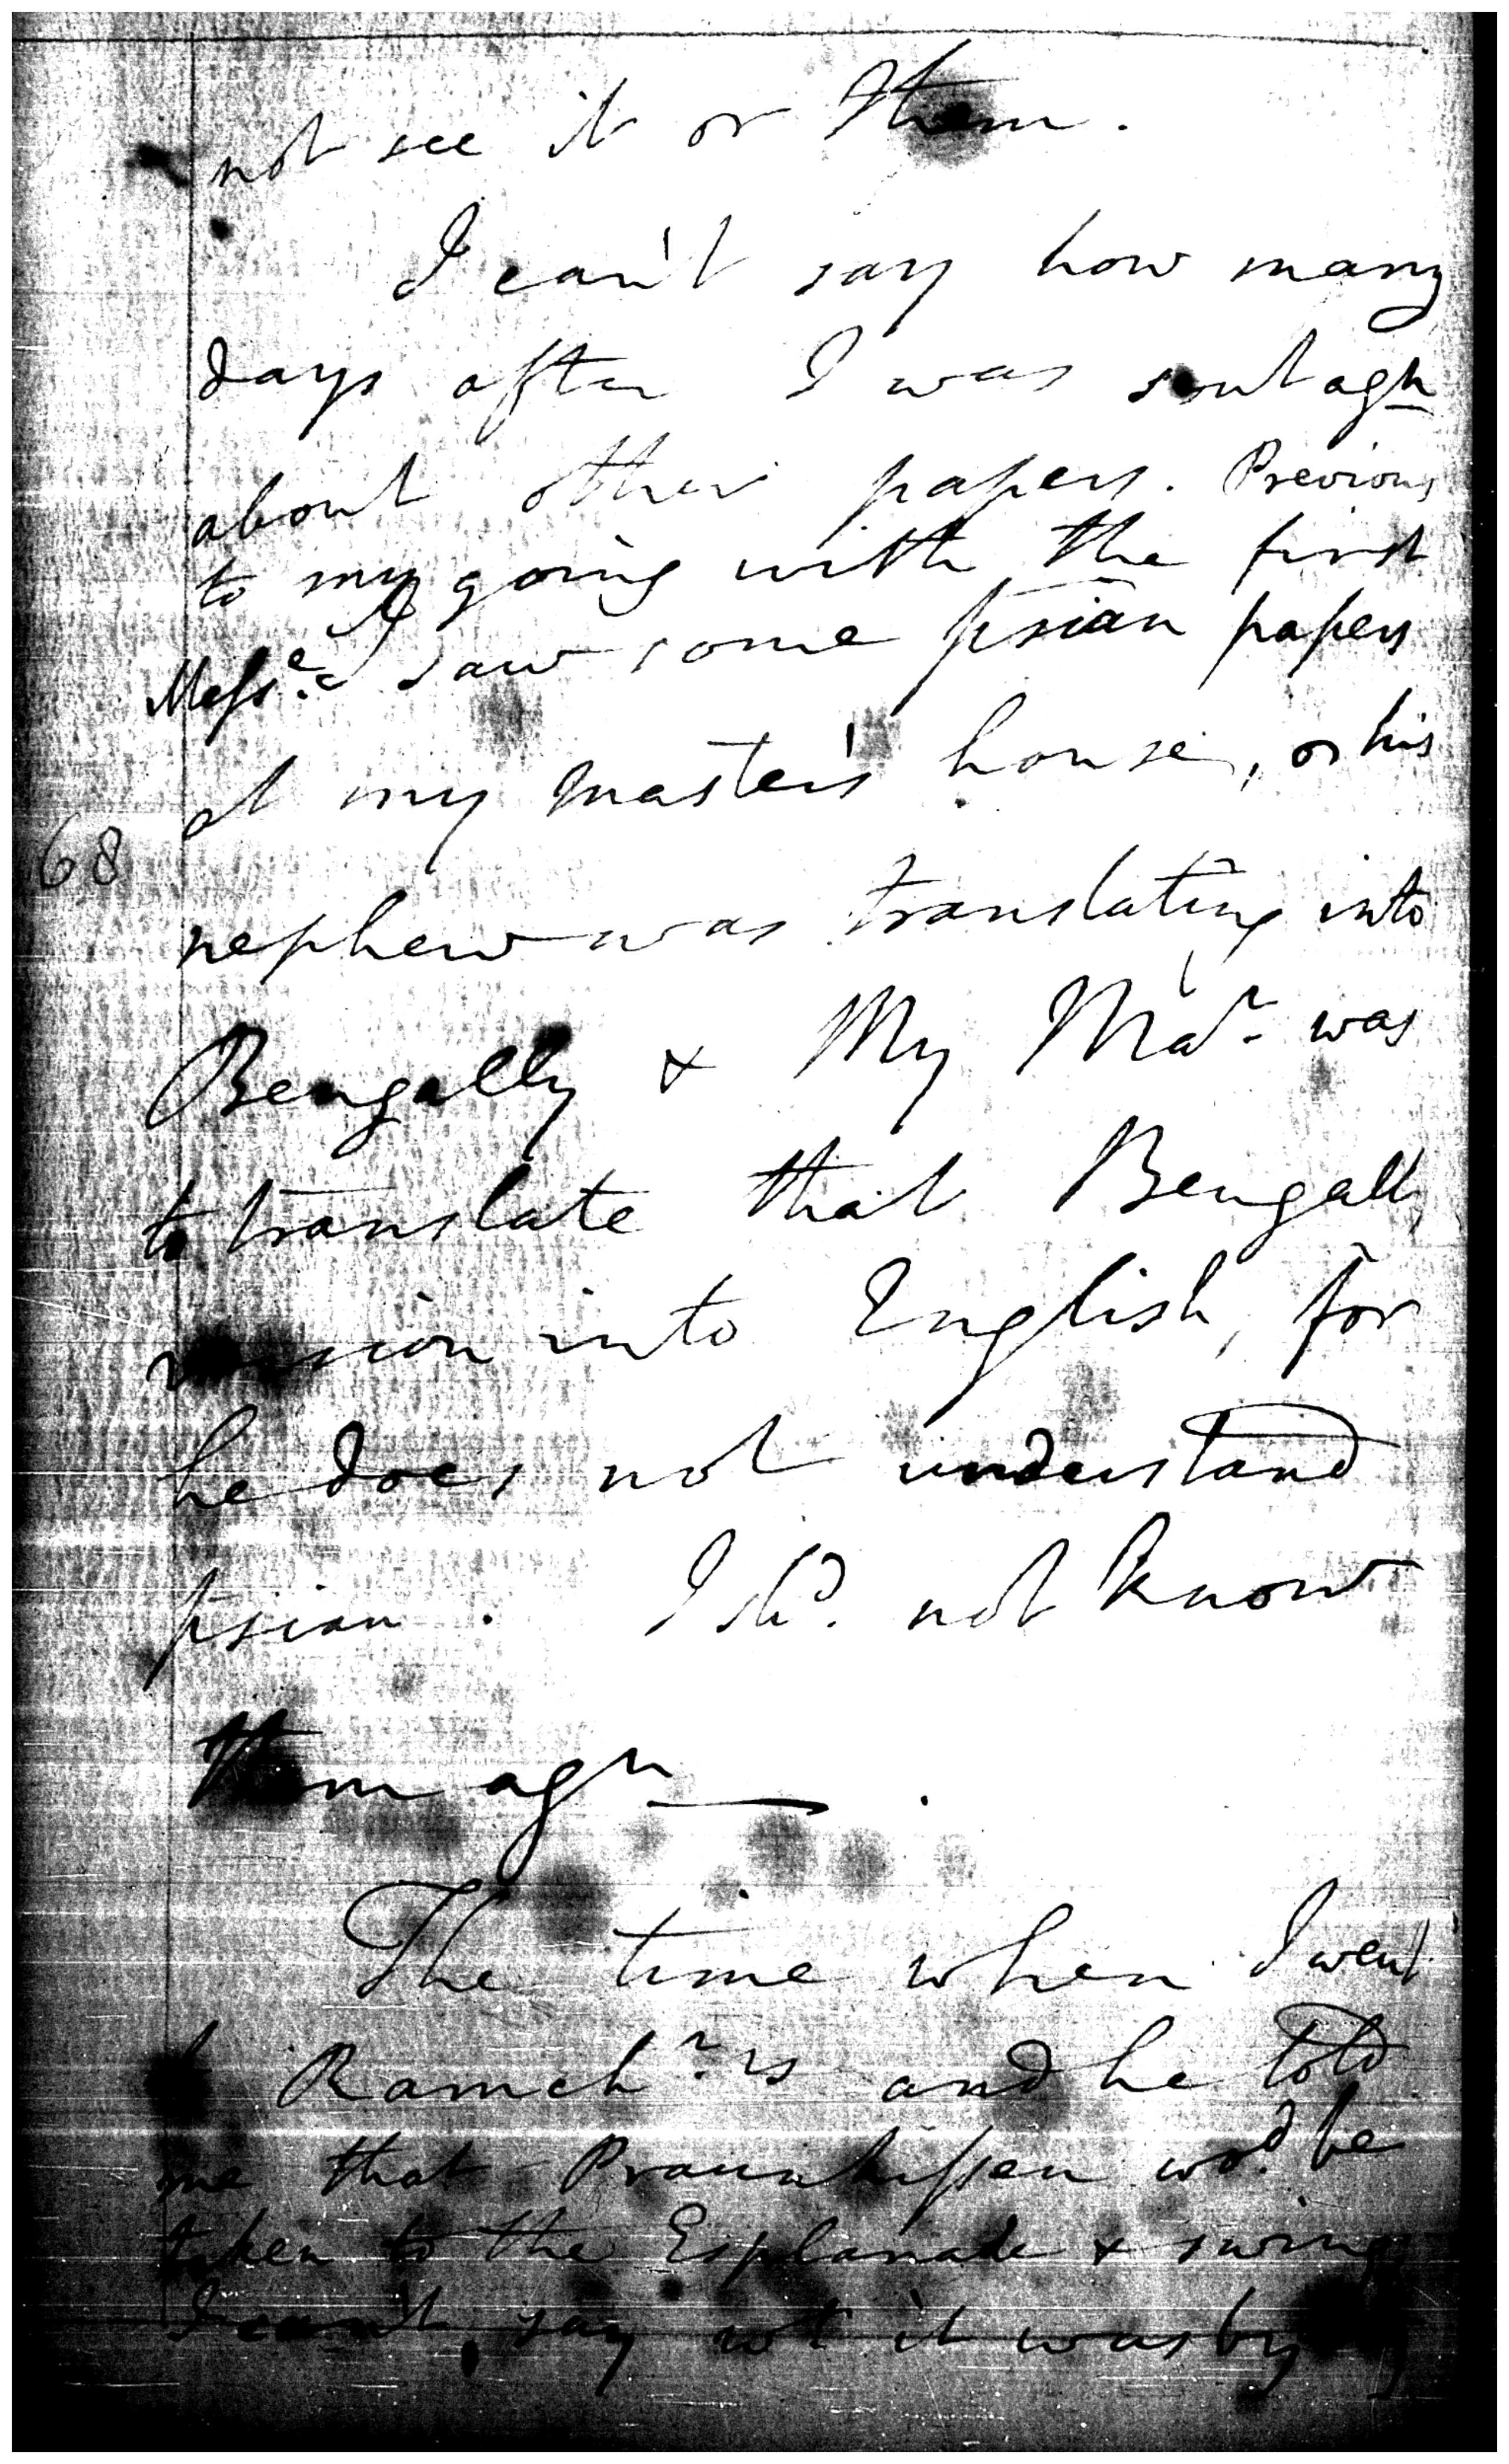 not see it or them.
I can't say how many
days after I was sent agn
about other papers. Previous
to my going with the first
Messe. I saw some psian papers
at my master's house, or his
68
nephew was translating into
Bengally & My Mar. was
to translate that Bengally
version into English, for
he does not understand
psian. I shd. not know
them agn.
The time when I went
to Ramchrs and he told
me that Praunkissen wod. be
taken to the Esplanade & swing
I can't say wt it was by